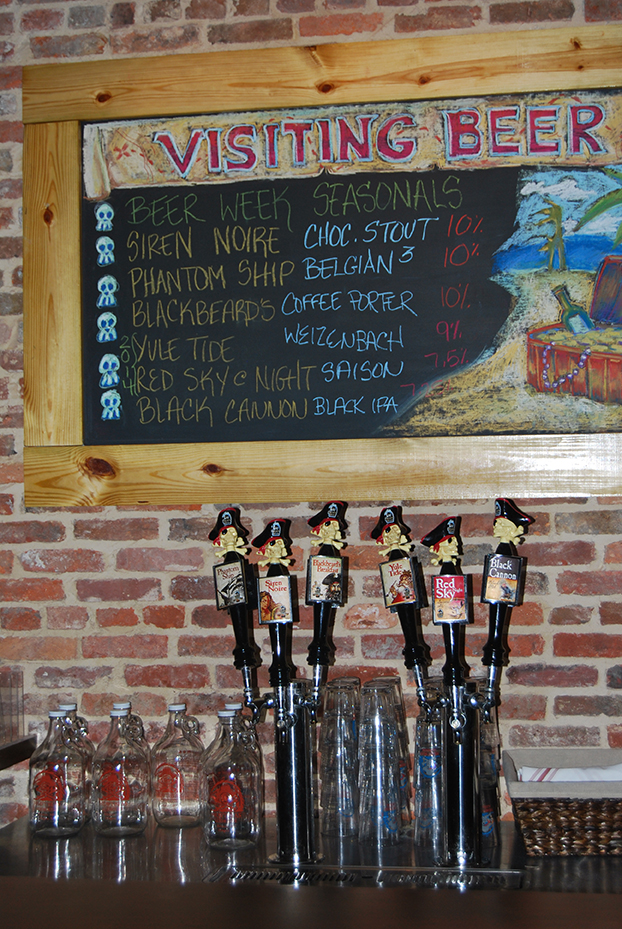 VISITING BEER
BEER WEEK SEASONALS
SIREN NOIRE CHOC. STOUT 10%
PHANTOM SHIP BELGIAN 3 10%
BLACKBEARD'S COFFEE PORTER 10%
YULE TIDE WEIZENBACH 9%
RED SKY @ NIGHT SAISON 7.5%
BLACK CANNON BLACK IPA
Phantom Ship
Siren Noire
Blackbeard's Breakfast
Yule Tide
Red Sky
Black Cannon